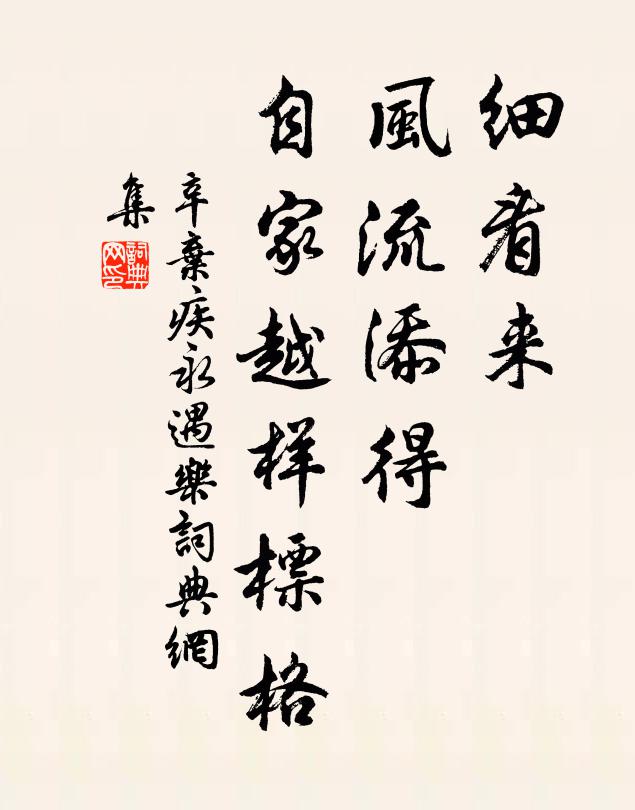 细看来
風流添得
自家越样標格
辛棄疾永遇樂詞典網
集
詞典
网印